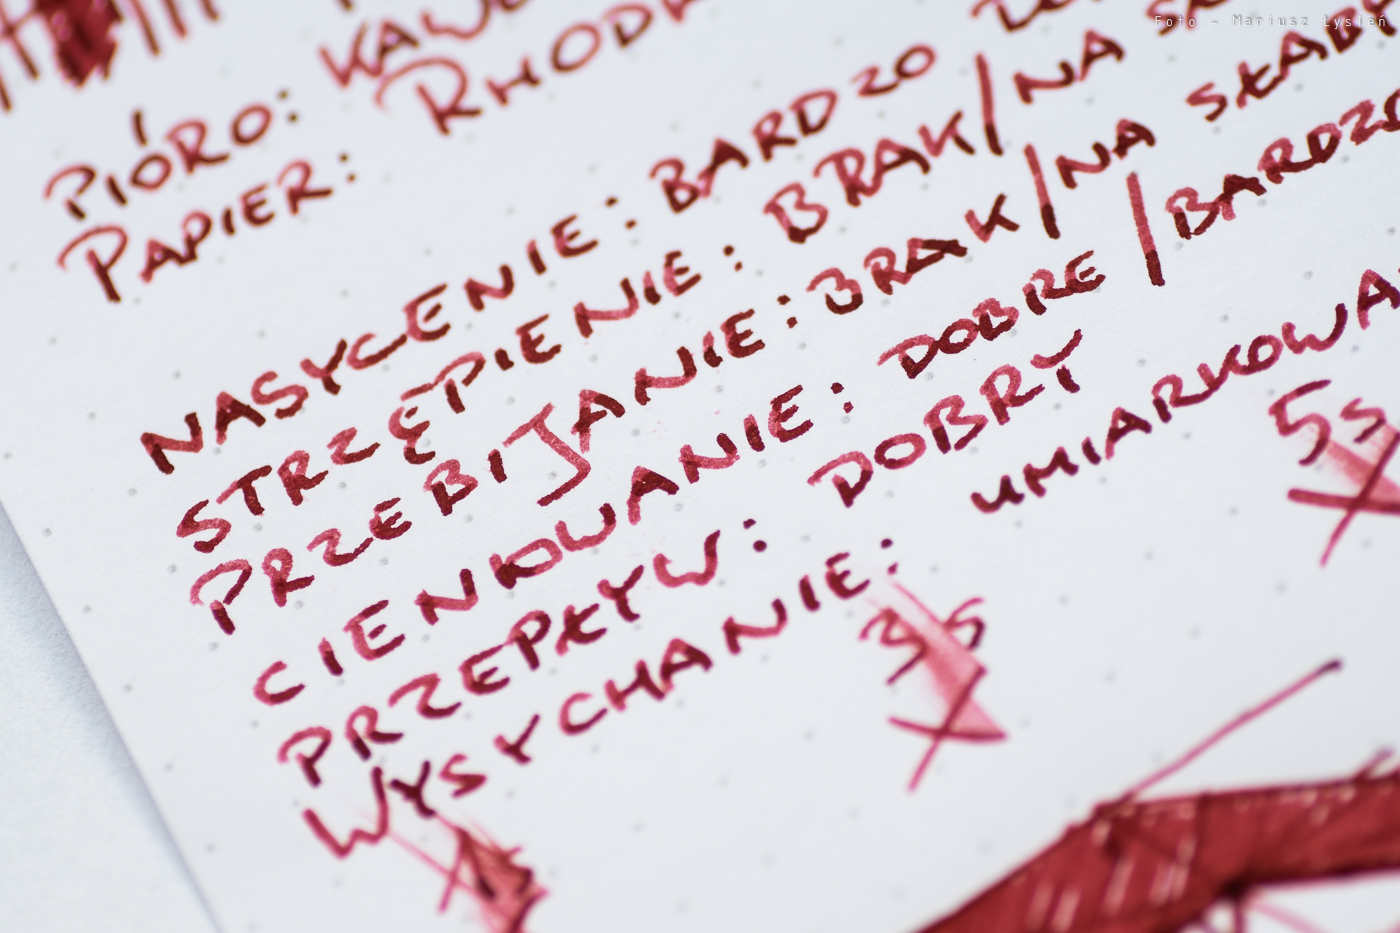 Foto - Mariusz Łysień
PIÓRO:
PAPIER: RHOD
NASYCENIE: BARDZO
STRZĘPIENIE: BRAK/NA
PRZEBIJANIE: BRAK/NA SŁAB
CIENIOWANIE: DOBRE/BARDZO
PRZEPŁYW: DOBRY
WYSYCHANIE: UMIARKOWA
3S 5S